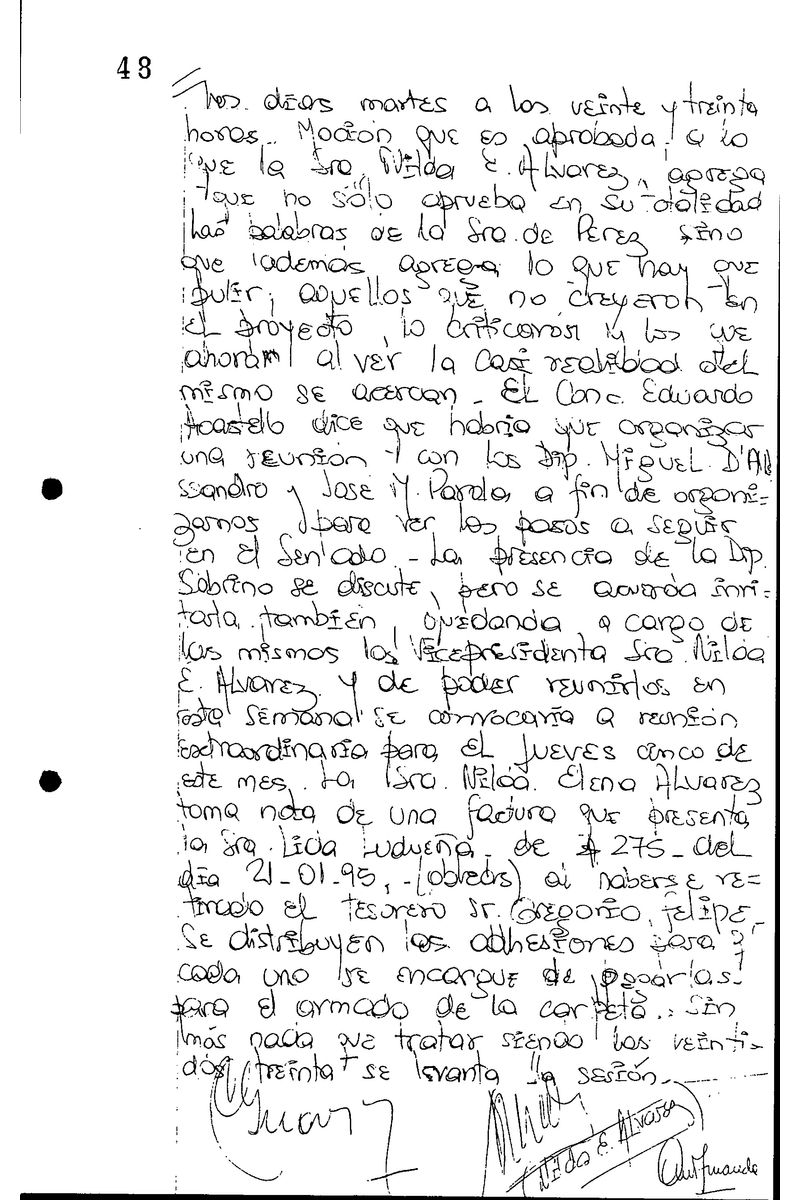 48
los días martes a los veinte y treinta
horas. Moción que es aprobada a lo
que la Sra. Nilda E. Alvarez, agrega
que no sólo aprueba en su totalidad
las palabras de la Sra. de Perez sino
que además agrega lo que hay que
pulir, aquellos que no creyeron en
el proyecto, lo criticaron y los que
ahora al ver la casi realidad del
mismo se acercan - El Conc. Eduardo
Acastello dice que habría que organizar
una reunión con los Dip. Miguel D'Ale
ssandro y José M. Pardo, a fin de organi-
zarnos para ver los pasos a seguir
en el Senado - La presencia de la Dip.
Sobrino se discute, pero se acuerda invi-
tarla también, quedando a cargo de
los mismos la Vicepresidenta Sra. Nilda
E. Alvarez y de poder reunirlos en
esta semana se convocaría a reunión
extraordinaria para el jueves cinco de
este mes. La Sra. Nilda Elena Alvarez
toma nota de una factura que presenta
la Sra. Licia Ludueña - de $ 275 - del
día 21-01-95, - (obleas) al haberse re-
tirado el tesorero Sr. Gregorio Felipe -
Se distribuyen las adhesiones para q'
cada uno se encargue de pegarlas
para el armado de la carpeta. Sin
más nada que tratar siendo las veinti-
dós treinta se levanta la sesión.
Nilda E. Alvarez